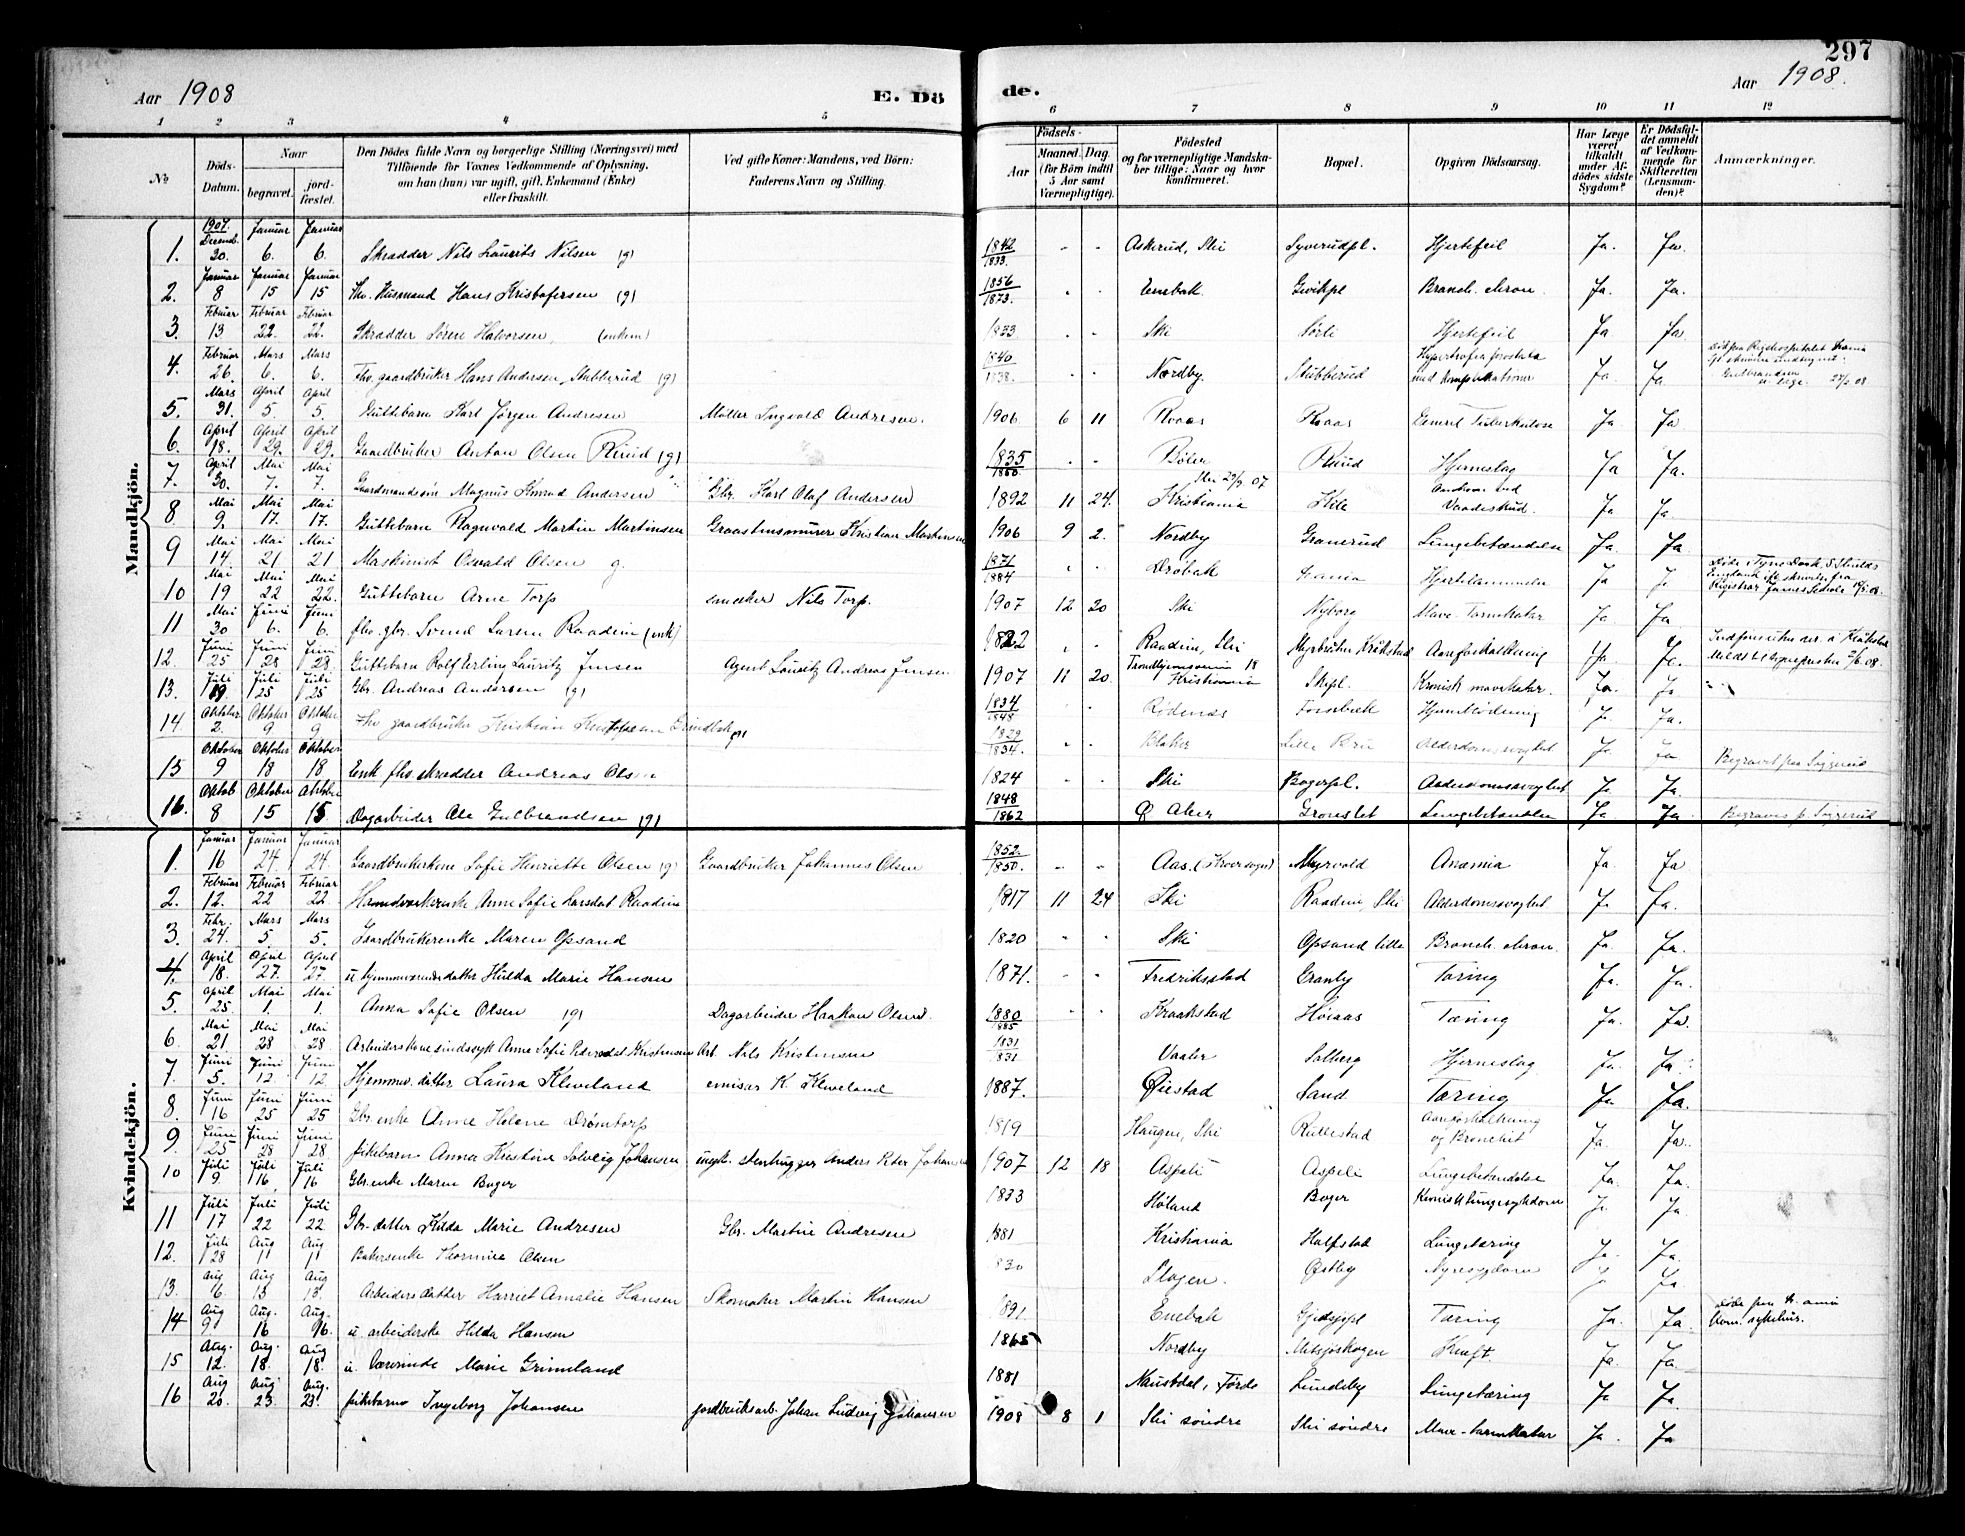 297
Aar 1908
E. Dö de.
Aar 1908.
1 2 3 4 5 6 7 8 9 10 11 12
No
Döds-Datum.
Naar
begravet.
jordfæstet.
Den Dödes fulde Navn og borgerlige Stilling (Næringsvei) med Tilföiende for Voxnes Vedkommende af Oplysning, om han (hun) var ugift, gift, Enkemand (Enke) eller fraskilt.
Ved gifte Koner: Mandens, ved Börn: Faderens Navn og Stilling.
Födsels-
Aar
Maaned. Dag.
(for Börn indtil 5 Aar samt Værnepligtige).
Födested og for værnepligtige Mandskaber tillige: Naar og hvor konfirmeret.
Bopæl.
Opgiven Dödsaarsag.
Har Læge været tilkaldt under Afdödes sidste Sygdom?
Er Dödsfaldet anmeldt af Vedkommende for Skifteretten (Lensmanden)?
Anmærkninger.
Mandkjön.
1. 1907. Decemb. 30. Januar 6. Januar 6. Skradder Nils Laurits Nilsen (g) 1842 1833. - - Askerud, Ski Syverudpl. Hjertefeil Ja. Ja
2. Januar 8 Januar 15 Januar 15 Husmand Hans Kristofersen (g) 1856 1873. Enebak Gvikpl Bronch. chron. Ja. Ja.
3. Februar 13 Februar 22. Februar 22. Skradder Sören Halvorsen (enkem) 1833 - Ski Sørli Hjertefeil Ja Ja
4. Februar 26. Mars 6. Mars 6. Fhv. gaardbruker Hans Andersen Stubberud (g) 1840 1838. Nordby Stubberud Hypertrofia prostata med komplikationer Ja. Ja.
5. Mars 31. April 5. April 5. Guttebarn Karl Jørgen Andresen Møller Ingvald Andresen. 1906 6 11 Kraas Kraas Tuberkulose Ja Ja
6. April 18. April 29. April 29. Gaardbruker Anton Olsen Riiud (g) 1835 1860 Bøler Riiud Hjerneslag Ja Ja.
7. April 30. Mai 7. Mai 7. Gaardmandssøn Magnus Konrad Andersen Gbr. Karl Olaf Andersen 1892 11 24. Ski 29/9 07 Kristiania Vaadeskud. Ja Ja.
8 Mai 9. Mai 17. Mai 17. Guttebarn Ragnvald Martin Martinsen Graastensmurer Kristian Martinsen 1906 9 2. Nordby Granerud Lungebetændelse Ja Ja
9 Mai 14 Mai 21 Mai 21 Maskinist Osvald Olsen g. 1871 1884 Drøbak Hjertelammelse Ja
10 Mai 19 Mai 22 Mai 22. Guttebarn Arne Torp snedker Nils Torp. 1907 12 20 Ski Nyborg Mave-Tarmkatar Ja Ja.
11 Mai 30 Juni 6. Juni 6. fhv. gbr. Svend Larsen Raadim (enk) 1822 Raadim, Ski Kråkstad Aareforkalkning Ja
12. Juni 25 Juni 28 Juni 28. Guttebarn Rolf Erling Lauritz Jensen Agent Lauritz Andreas Jensen 1907 11 20. Trondhjemsveien 18 Kristiania Skipl. Kronisk mavekatar. Ja. Ja
13. Juli 19. Juli 25 Juli 25 Gbr. Andreas Andersen (g) 1834 1848 Rødenes Fossbæk Hjerneblødning Ja.
14. Oktober 2. Oktober 9 Oktober 9 Fhv gaardbruker Kristian Kristofersen (g) 1829 1834. Blaker Lille Bru Alderdomssvaghet Ja Begravet paa Siggerud
15 Oktober 9 Oktober 18 Oktober 18 Enk. fhv. skrædder Andreas Olsen 1824 Ski Bøgerpl. Alderdomssvaghet Ja.
16. Oktob 8 Oktober 15 Oktober 15 Dagarbeider Ole Gulbrandsen (g) 1848 1862 Ø Aker Grønslet Lungebetændelse Ja Ja Begraves p. Siggerud
Kvindekjön.
1. Januar 16 Januar 24 Januar 24. Gaardbrukerkone Sofie Henriette Olsen (g) Gaardbruker Johannes Olsen 1852. 1850. - - Aas. (Kroersogn) Myrvold Anæmia Ja. Ja
2. Februar 12. Februar 22 Februar 22 Anne Sofie Larsdat Raadim 1817 11 24 Ski Raadim, Ski Alderdomssvaghet Ja
3. Febr. 24. Mars 5. Mars 5. Gaardbrukerenke Maren Opsand 1820 - - Ski Opsand lille Bronch. chron. Ja. Ja.
4. April 18. April 27. April 27 u. hjemmeværende datter Hulda Marie Hansen 1871. - - Fredriksstad Granby Tæring Ja. Ja.
5. April 25 Mai 1. Mai 1. Anna Sofie Olsen (g) Dagarbeider Haakon Olsen. 1880 1885 Kraakstad Høiaas Tæring Ja. Ja.
6. Mai 21 Mai 28 Mai 28. Arbeiderskone sindssyk Anne Sofie Pedersdat Kristensen Arb. Nils Kristensen 1831 1831 Vaaler Solberg Hjerneslag Ja. Ja
7. Juni 5. Juni 12 Juni 12. Hjemmev. datter Laura Kleveland emisær K. Kleveland 1887. Øiestad Sand Tæring Ja Ja.
8. Juni 16 Juni 25 Juni 25 Gbr. enke Anne Helene Drømtorp 1819 Haugen, Ski Rullestad Aareforkalkning og Bronchit Ja. Ja.
9. Juni 25 Juni 28 Juni 28 Pikebarn Anna Kristine Solveig Johansen stenhugger Anders Peter Johansen 1907 12 18 Aspeli Aspeli Lungebetændelse Ja. Ja.
10 Juli 9 Juli 16 Juli 16 Gbr. enke Maren Bøger 1833 Høland Bøger Kronisk lungesykdom Ja.
11 Juli 17 Juli 22 Juli 22 Gbr. datter Hilda Marie Andresen Gbr. Martin Andresen 1881 Kristiania Halfstad Lungetæring Ja. Ja.
12. Juli 28 Aug 1 Aug 1 Bakerenke Olsen 1830 Slagen. Østby Nyresygdom Ja.
13. Aug 6. Aug 13 Aug 13 Arbeiders datter Harriet Amalie Hansen Skomaker Martin Hansen 1891. Enebak Tæring Ja. Ja.
14 Aug 9 Aug. 16 Aug. 16. u. arbeiderske Hilda Hansen 1865 Nordby Kræft. Ja. Ja.
15 Aug. 12. Aug. 18. Aug 18. u. Marie Grimeland 1881 Naustdal, Førde Lundeby Lungetæring Ja Ja.
16 Aug 20. Aug 23 Aug. 23. pikebarn Ingeborg Johansen jordbruksarb. Johan Ludvig Johansen 1908 8 1 Ski søndre Ski søndre Mave-tarmkatar Ja. Ja